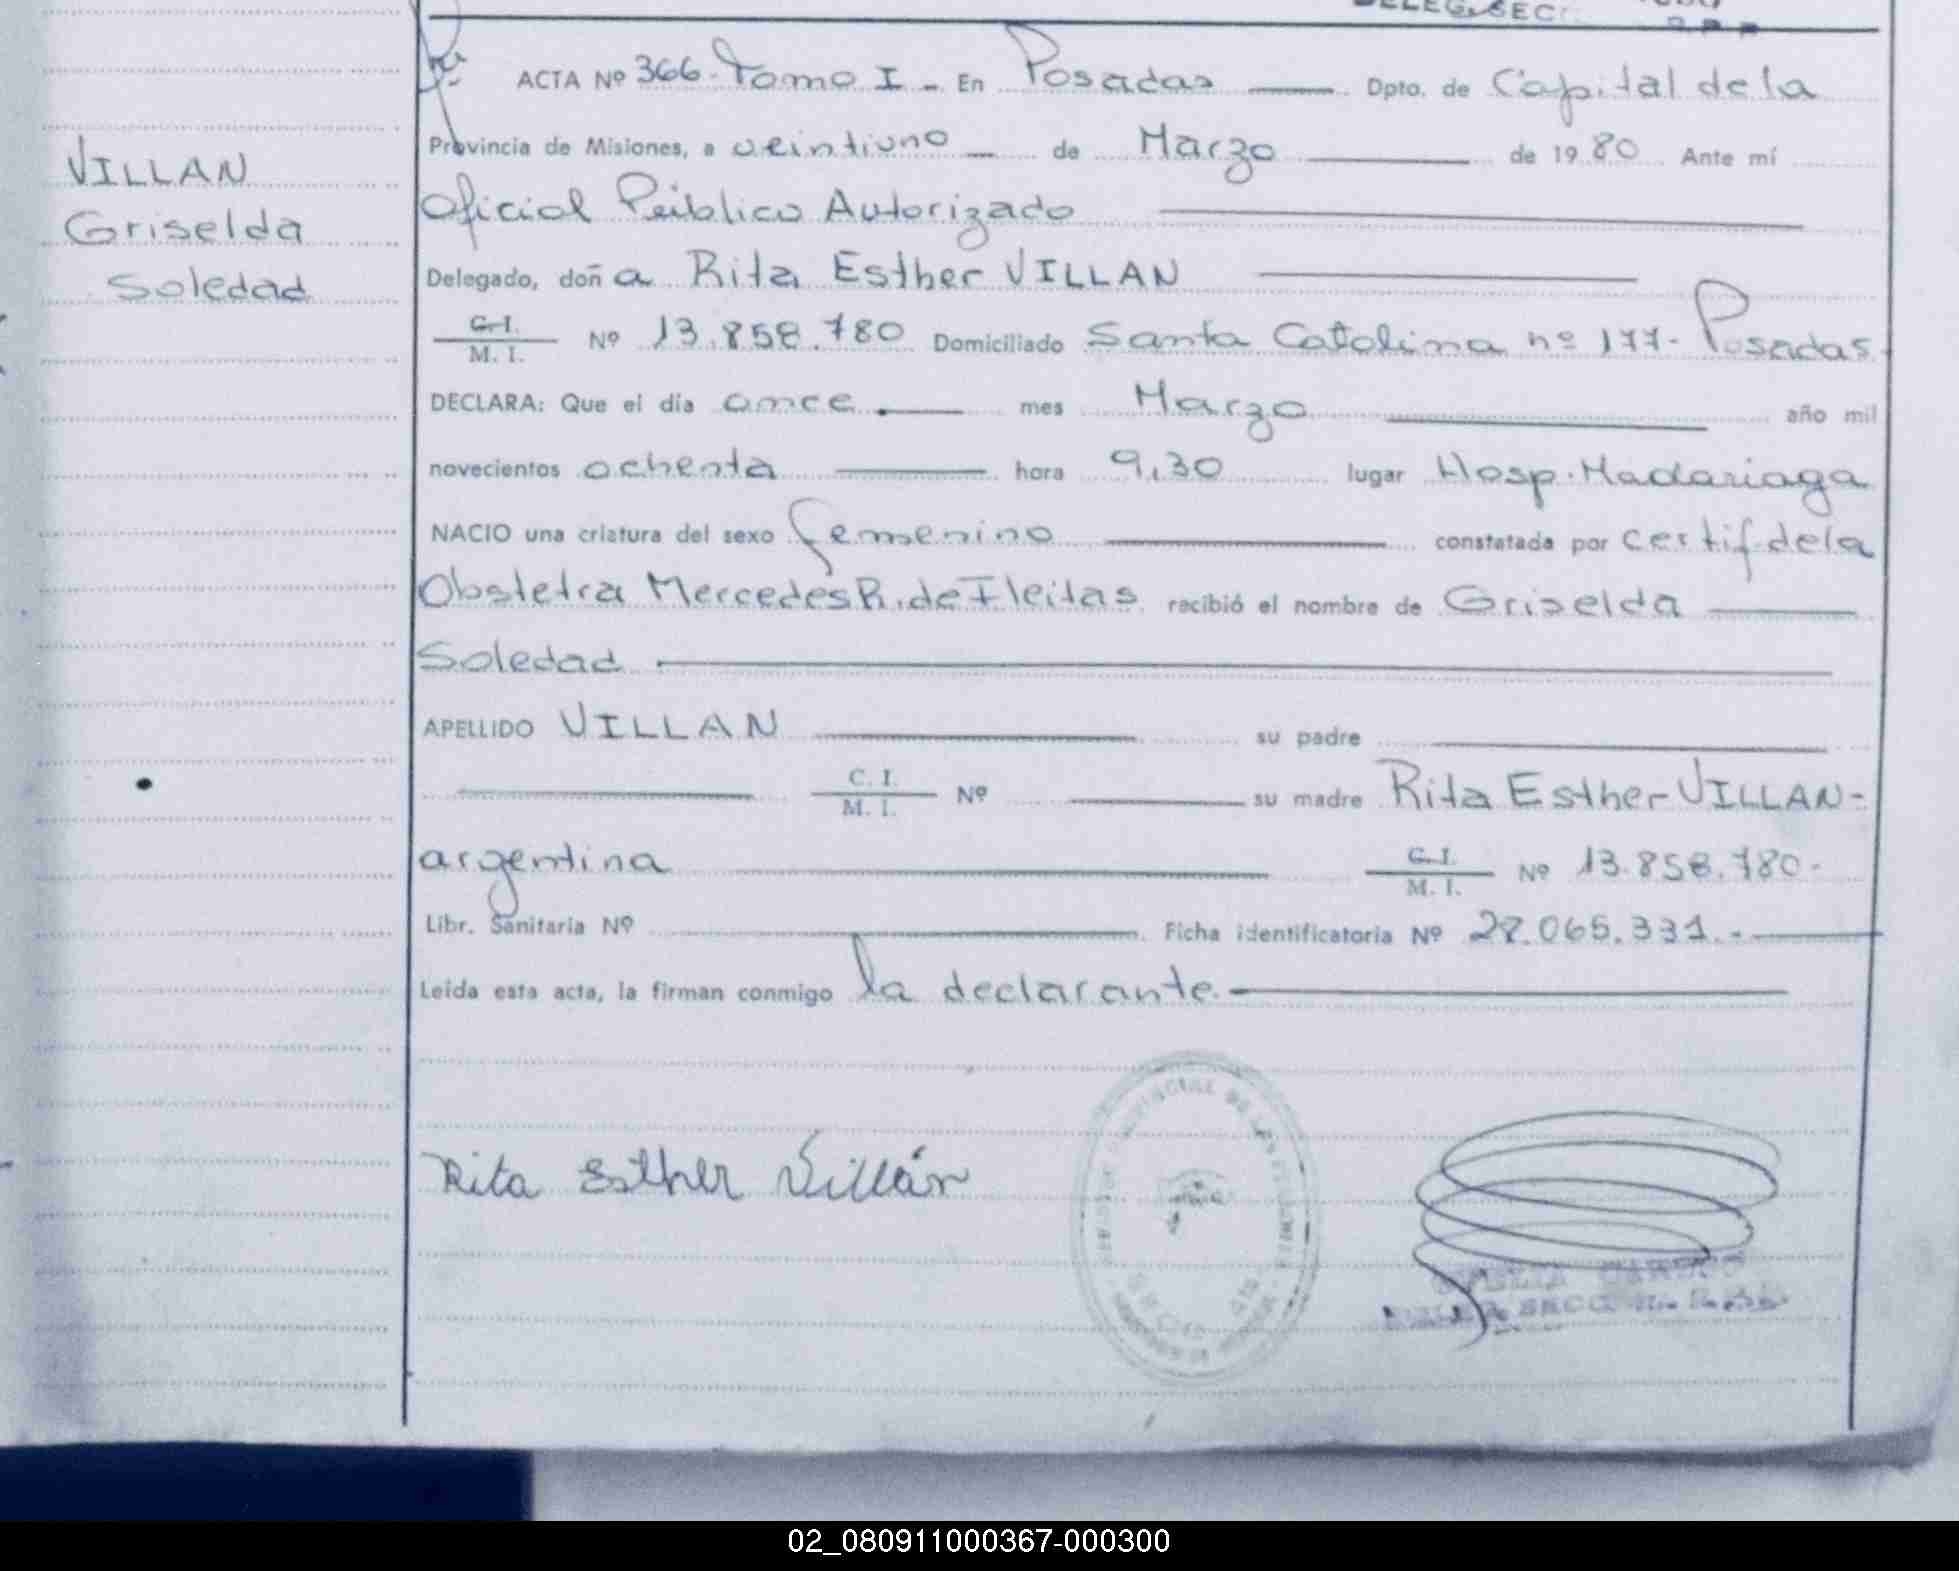 DELEG. SECC.
ACTA Nº 366. Tomo I - En Posadas Dpto. de Capital de la
Provincia de Misiones, a veintiuno de Marzo de 1980 Ante mí
VILLAN
Oficial Público Autorizado
Griselda
Delegado, doña Rita Esther VILLAN
Soledad
C.I.
M. I. Nº 13.858.780 Domiciliado Santa Catalina nº 177- Posadas
DECLARA: Que el día once mes Marzo año mil
novecientos ochenta hora 9,30 lugar Hosp. Madariaga
NACIO una criatura del sexo femenino constatada por certif. de la
Obstetra Mercedes R. de Fleitas recibió el nombre de Griselda
Soledad
APELLIDO VILLAN su padre
C. I.
M. I. Nº su madre Rita Esther VILLAN-
argentina C.I.
M. I. Nº 13.858.780-
Libr. Sanitaria Nº Ficha identificatoria Nº 28.065.331.-
Leída esta acta, la firman conmigo la declarante.
Rita Esther Villán
02_080911000367-000300